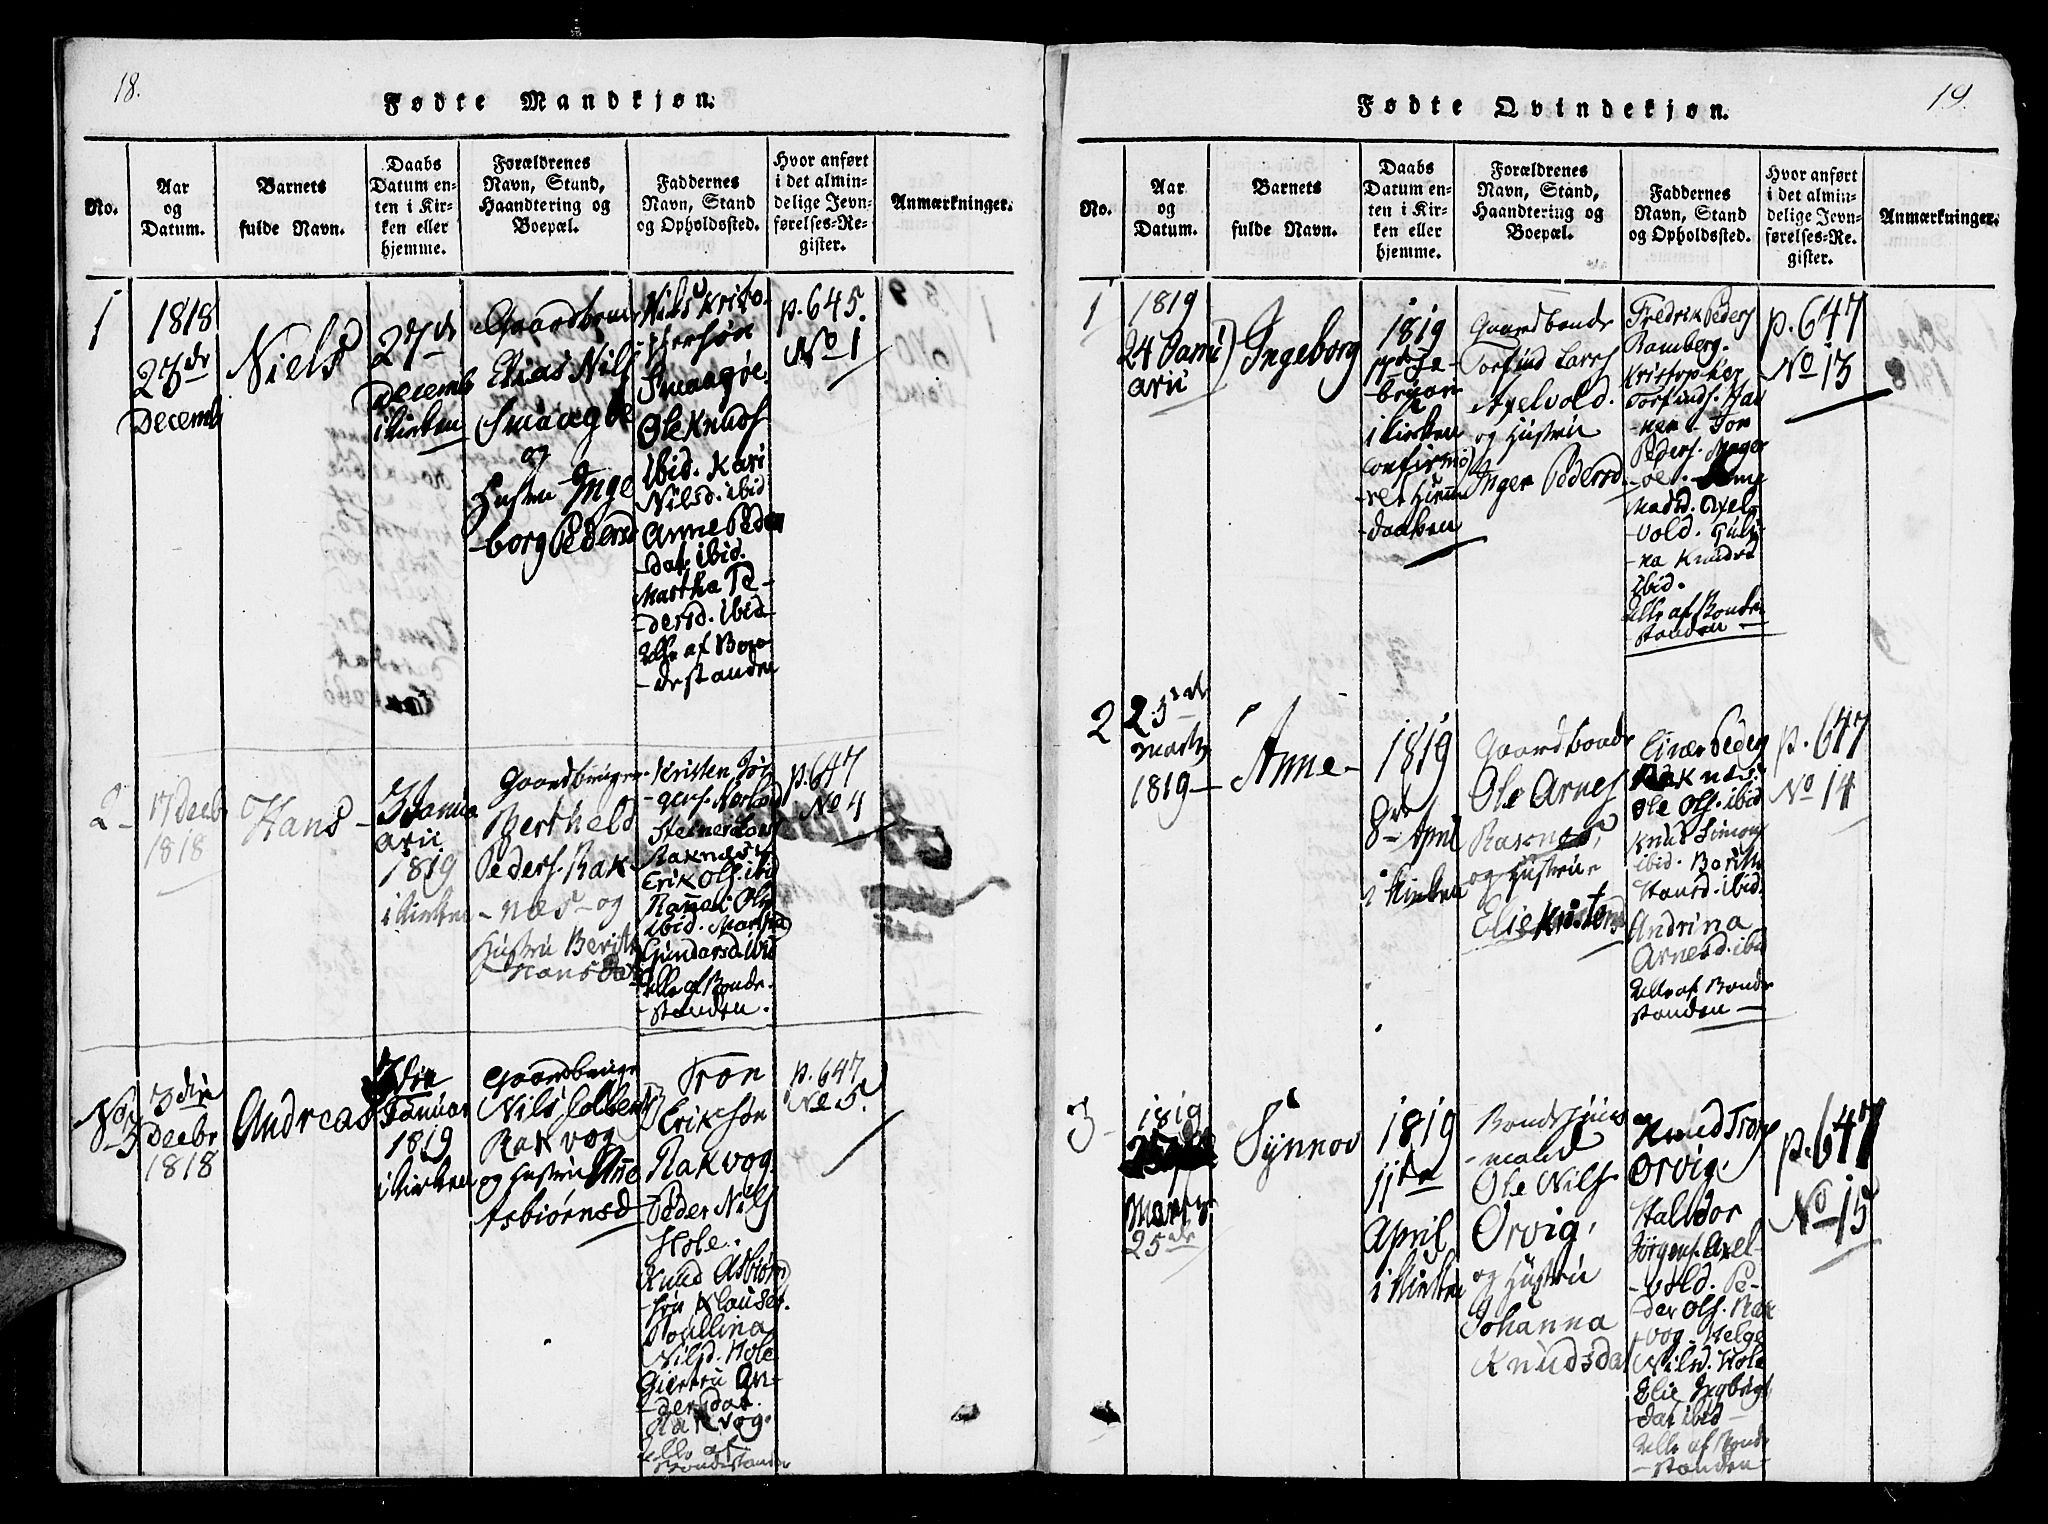 18.
Fødte Mandkjøn.
No.
Aar
og
Datum.
Barnets
fulde Navn.
Daabs
Datum en-
ten i Kir-
ken eller
hjemme.
Forældrenes
Navn, Stand,
Haandtering og
Boepæl.
Faddernes
Navn, Stand
og Opholdssted.
Hvor anført
i det almin-
delige Jevn-
førelses-Re-
gister.
Anmærkninger.
1
1818
23de
Decemb
Niels
27de
Decemb
i Kirken
Gaardbonde
Elias Nils
Smaagøe
og
Hustrue Inge
-borg Pedersd
Nils Kristo-
pherson
Smaagøe.
Ole Knuds
ibid. Kari
Nilsd. ibid
Anne Peder
-dat. ibid.
Martha Pe-
dersd. ibid
Alle af Bon-
-destanden
p. 645.
No 1
2-
17 Decbr
1818
Hans-
3 Janu-
arii
1819
i Kirken
Gaardbruger
Bertheld
Peders. Rak-
-næs- og
Hustru Berith
Hansdat
Kristen Jør-
-gens.
Steiner Lars
Raknæs
Erik Ols. ibid
Ole
ibid. Martha
Gundersd. ibid
Alle af Bonde-
-standen.
p. 647
No 4
No 3
3die
Decbr
1818
Andreas
3die
Januar
1819
i Kirken
Gaardbruger
Nils Colbens
Rakvog
og Hustru Anne
Asbiørnsd
Tron
Erikson
Rakvog.
Peder Nils
Hole.
Knud Asbiørn
-søn Klauset.
Poulina
Nilsd. Hole
Giertru An-
-dersdat.
Rakvog.
Alle af
Bondestanden
p. 647.
No 5.
19.
Fødte Qvindekjøn.
No.
Aar
og
Datum.
Barnets
fulde Navn.
Daabs
Datum en-
ten i Kir-
ken eller
hjemme.
Forældrenes
Navn, Stand,
Haandtering og
Boepæl.
Faddernes
Navn, Stand
og Opholdssted.
Hvor anført
i det almin-
delige Jevn-
førelses-Re-
gister.
Anmærkninger.
1
1819
24 Janu
arii
Ingeborg
1819
i Kirken
confirme-
-ret Hjemme
-daaben
Gaardbonde
Torfind Lars
Axelvold.
og Hustrue
Inger Pedersd.
Fredrik Peders
Bamberg.
Kristopher
Torfinds.
Peders.
Madsd. Axel-
vold.
-na Knudsd
ibid.
Alle af Bonde-
standen
p. 647
No 13
2
25de
Marty
1819-
Anne-
1819
8de April
i Kirken
Gaardbonde
Ole Arnes
Raknæs,
og Hustrue
Elie Kristensd
Einær Peder
Raknæs.
Ole Ols. ibid
Knut Simons
ibid. Berith
Hansd. ibid.
Andrina
Arnesd. ibid
Alle af Bonde-
standen-
p. 647
No 14
3-
1819
Marty.
25de
Synnov
1819
11te
April
i Kirken
Bonde Huus
-mand
Ole Nils.
Ørvig,
og Hustrue
Johanna
Knudsdat
Knud Trons
Ørvig.
Haldor
Jørgens. Axel-
-vold. Pe-
der Ols. Rak
-vog. Helge
Nilsd. Hole
Elie Ingbrigt
-dat ibid-
Alle af Bonde
-standen-
p. 647
No 15